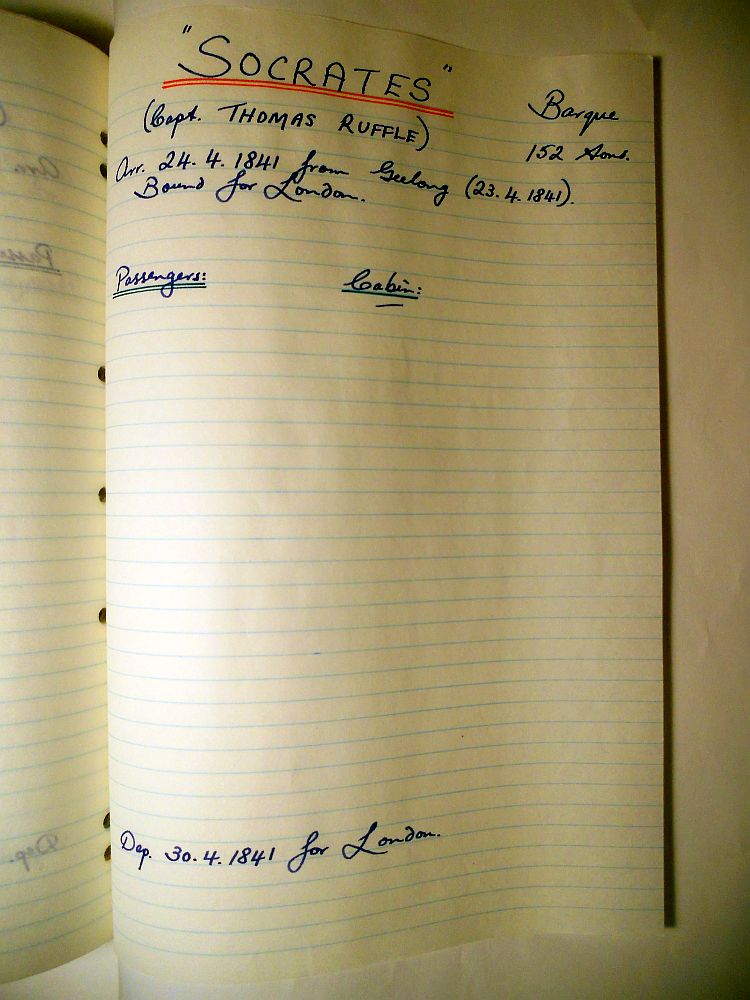 "SOCRATES"
Barque
(Capt. THOMAS RUFFLE)
152 tons.
Arr. 24. 4. 1841 from Geelong (23. 4. 1841).
Bound for London.
Passengers: Cabin:
Dep. 30. 4. 1841 for London.